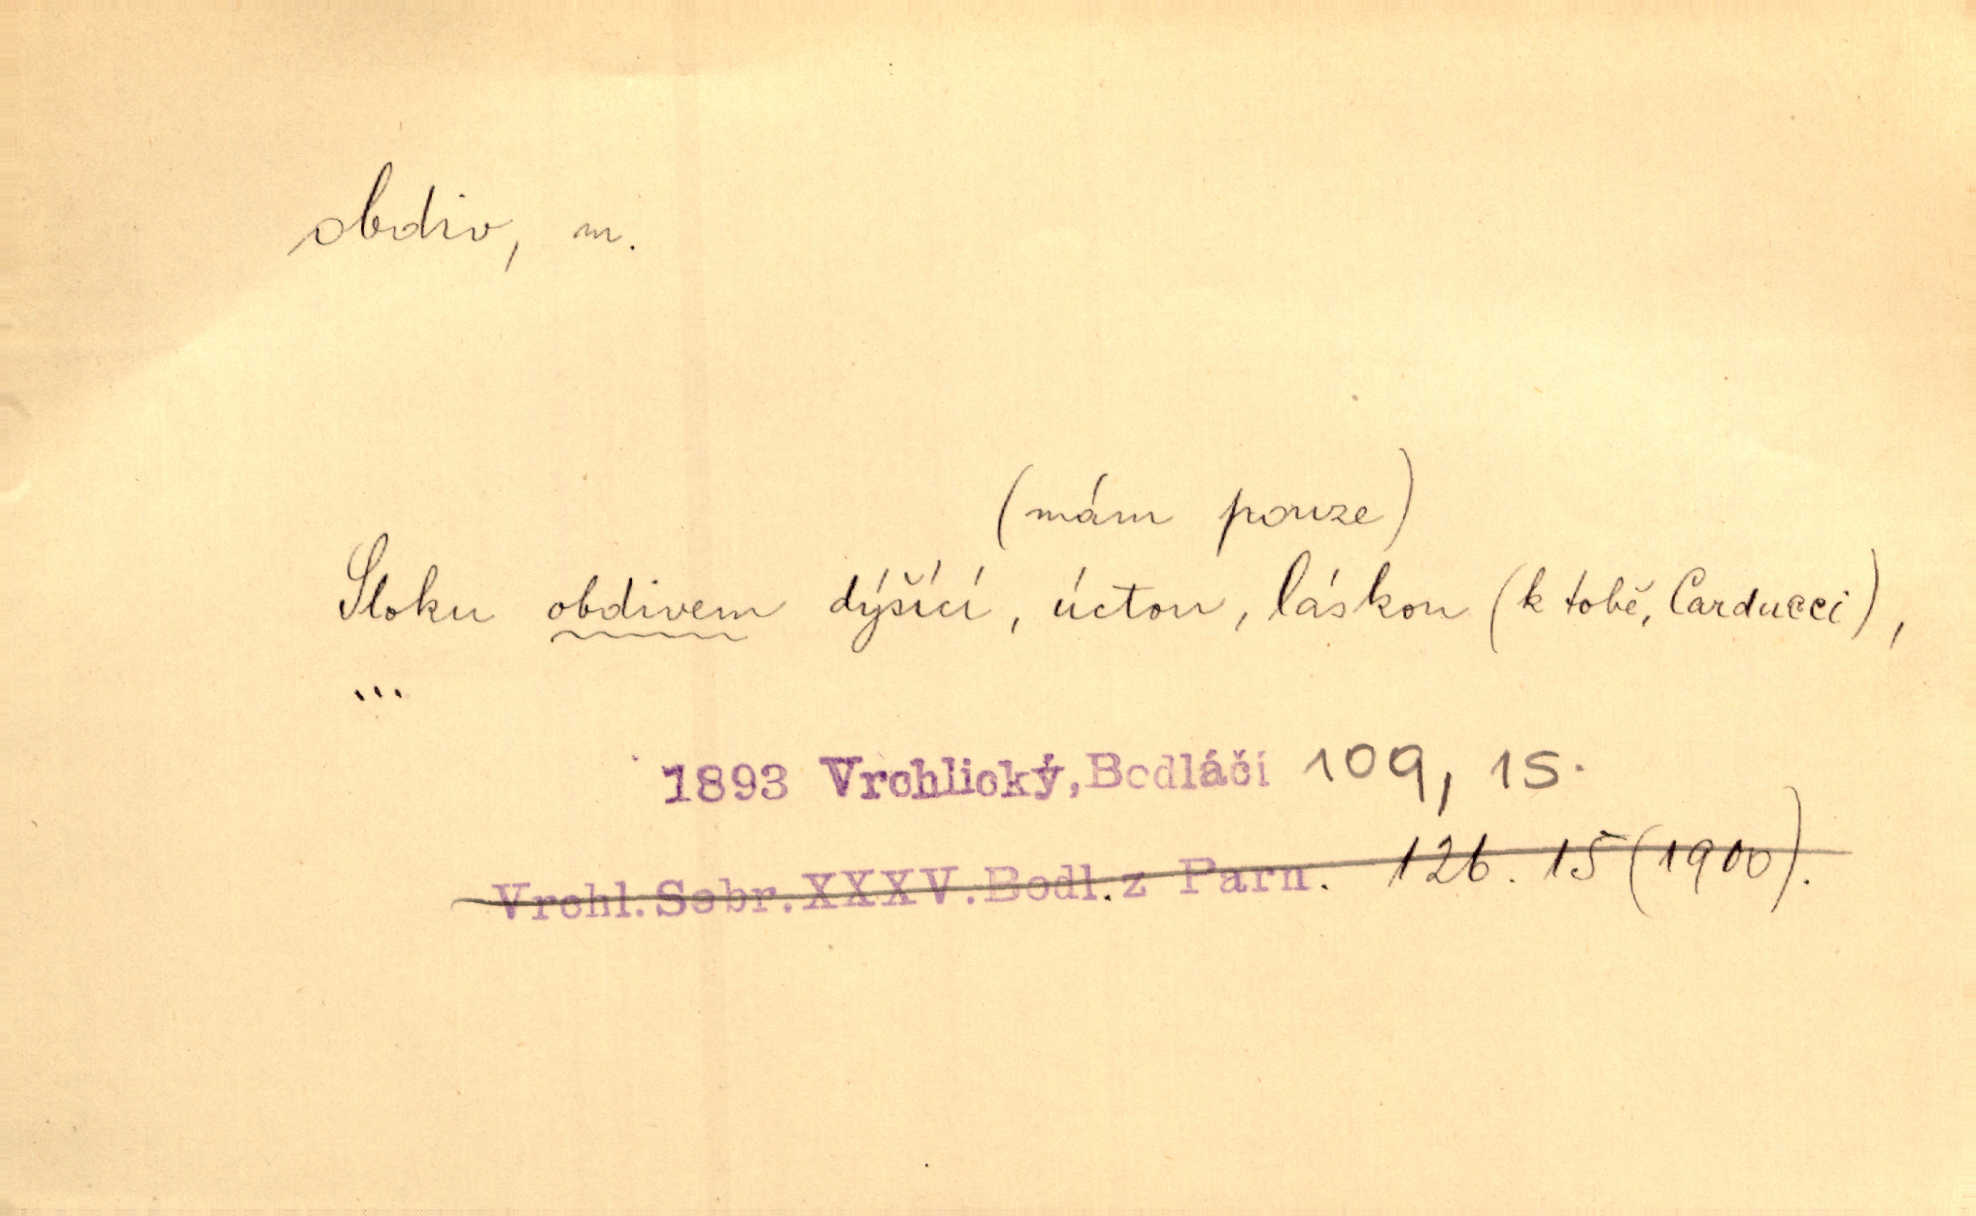 obdiv, m.
(mám pouze)
Sloku obdivem dýšící, úctou, láskou (k tobě, Carducci),
...
1893 Vrchlický, Bodláčí 109, 15.
Vrchl. Sebr. XXXV. Bodl. z Parn. 126. 15 (1900).